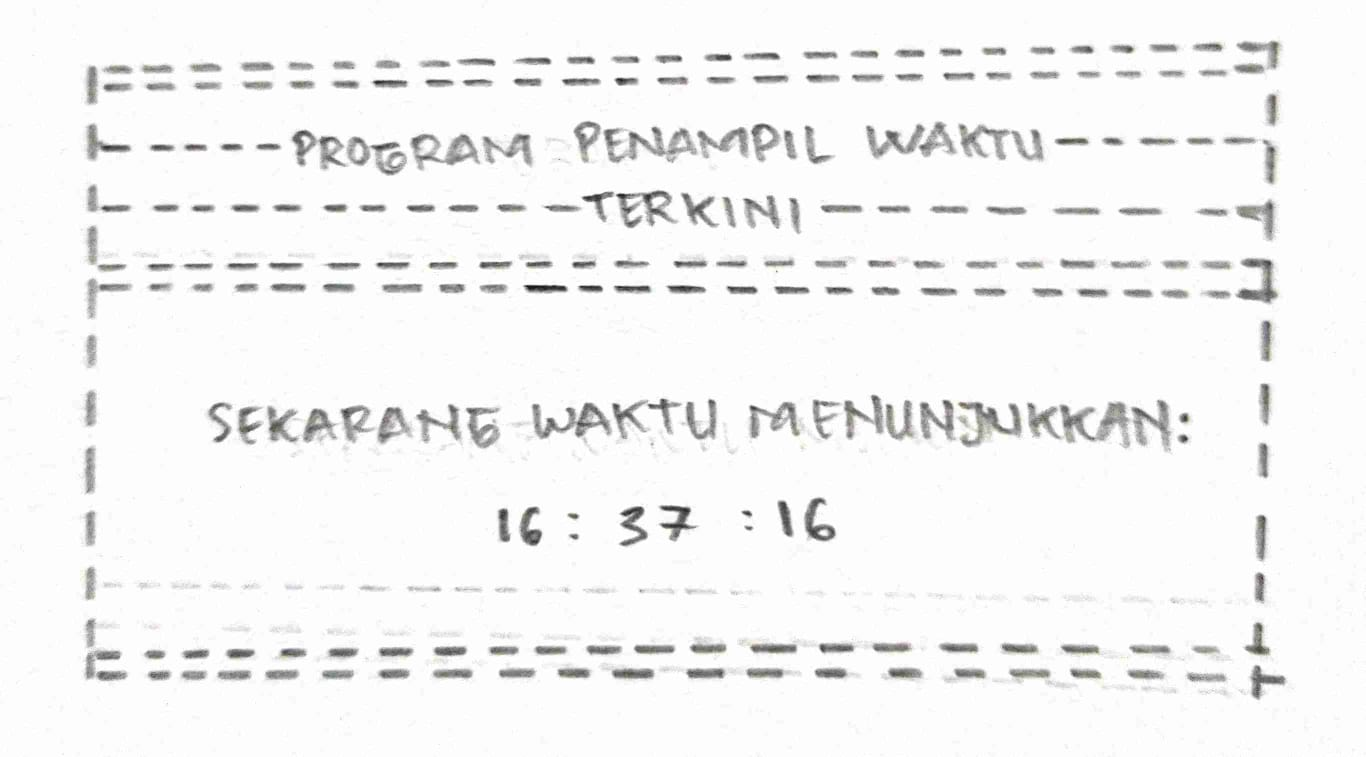 PROGRAM PENAMPIL WAKTU
TERKINI
SEKARANG WAKTU MENUNJUKKAN:
16 : 37 : 16